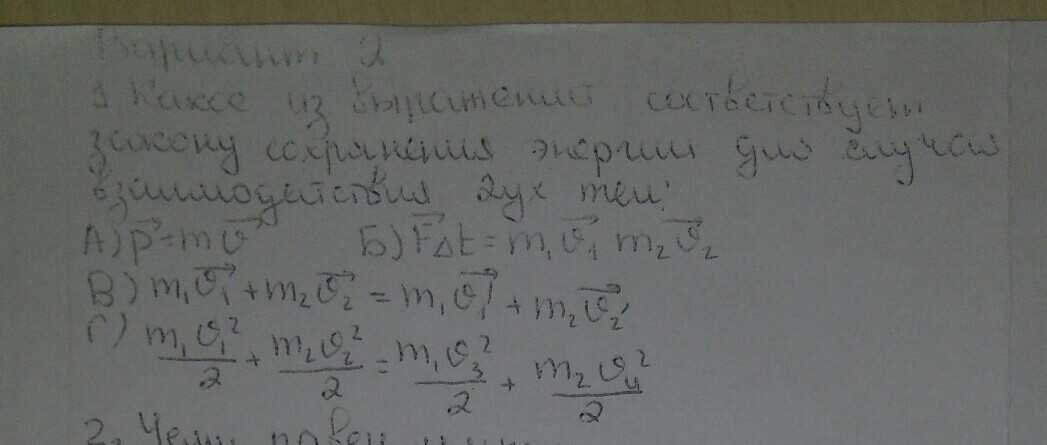 Вариант 2
1 Какое из выражений соответствует
закону сохранения энергии для случая
взаимодействия 2ух тел:
А) p⃗=mϑ⃗ Б) F⃗Δt=m₁ϑ⃗₁ m₂ϑ⃗₂
В) m₁ϑ⃗₁+m₂ϑ⃗₂=m₁ϑ⃗₁'+m₂ϑ⃗₂'
Г) m₁ϑ₁²/2+m₂ϑ₂²/2=m₁ϑ₃²/2+m₂ϑ₄²/2
2. Чему равен